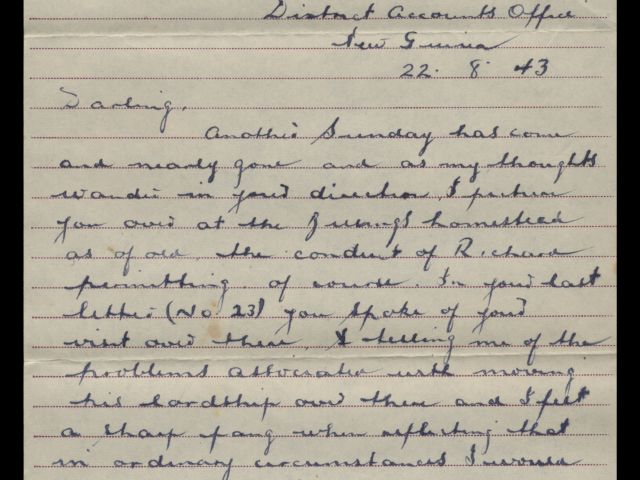 District Accounts Office
New Guinea
22. 8. 43
Darling,
Another Sunday has come
and nearly gone and as my thoughts
wander in your direction, I picture
you over at the homestead
as of old. the conduct of Richard
permitting, of course. In your last
letter (No 23) you spoke of your
visit over there, & telling me of the
problems associated with moving
his lordship over there and I felt
a sharp pang when reflecting that
in ordinary circumstances I would